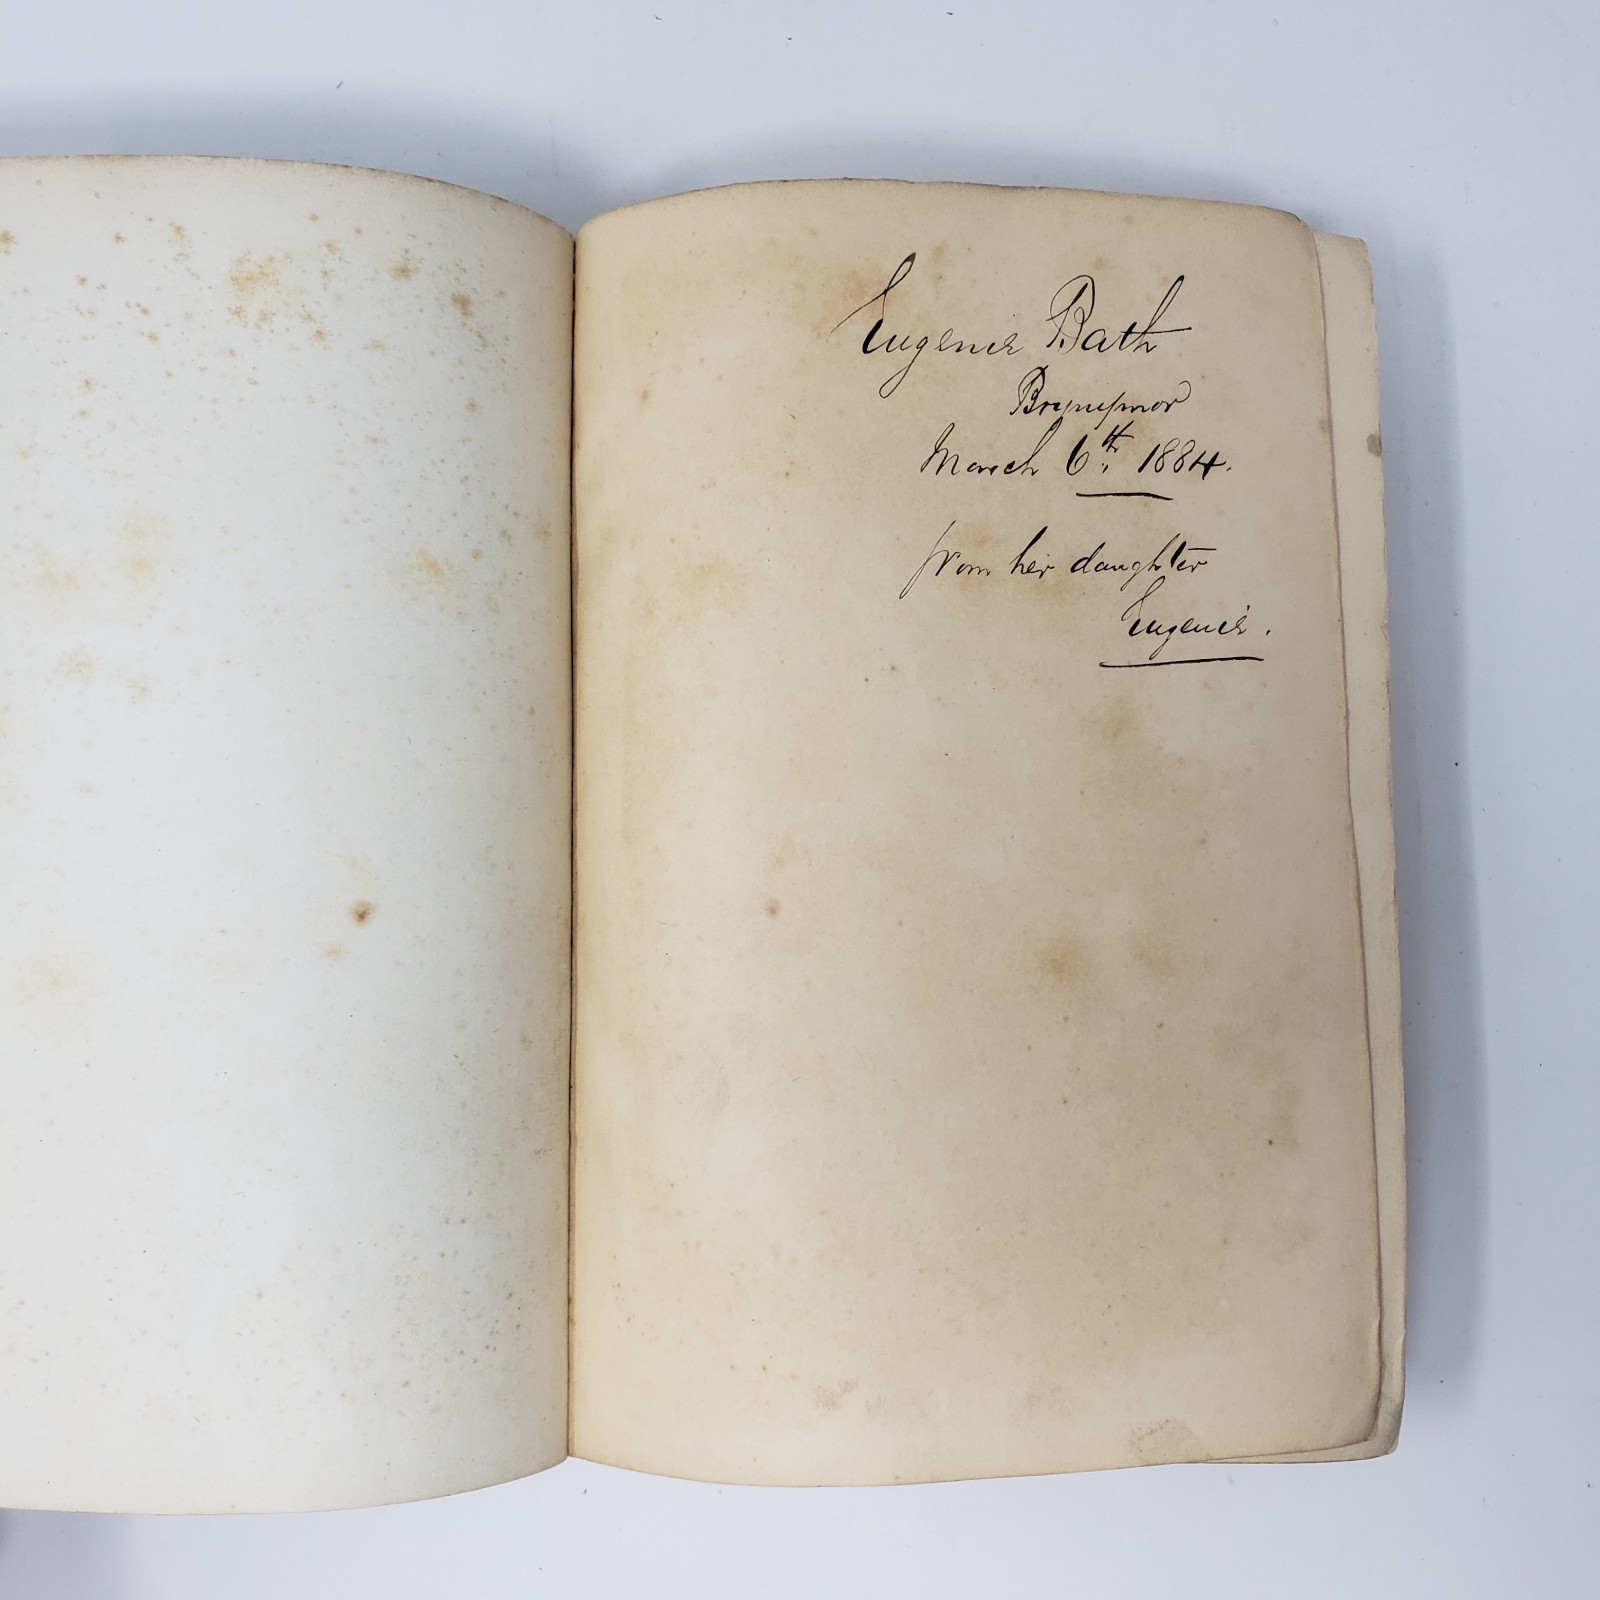 Eugenie Bath
Brynymor
March 6th. 1884.
from her daughter
Eugenie.